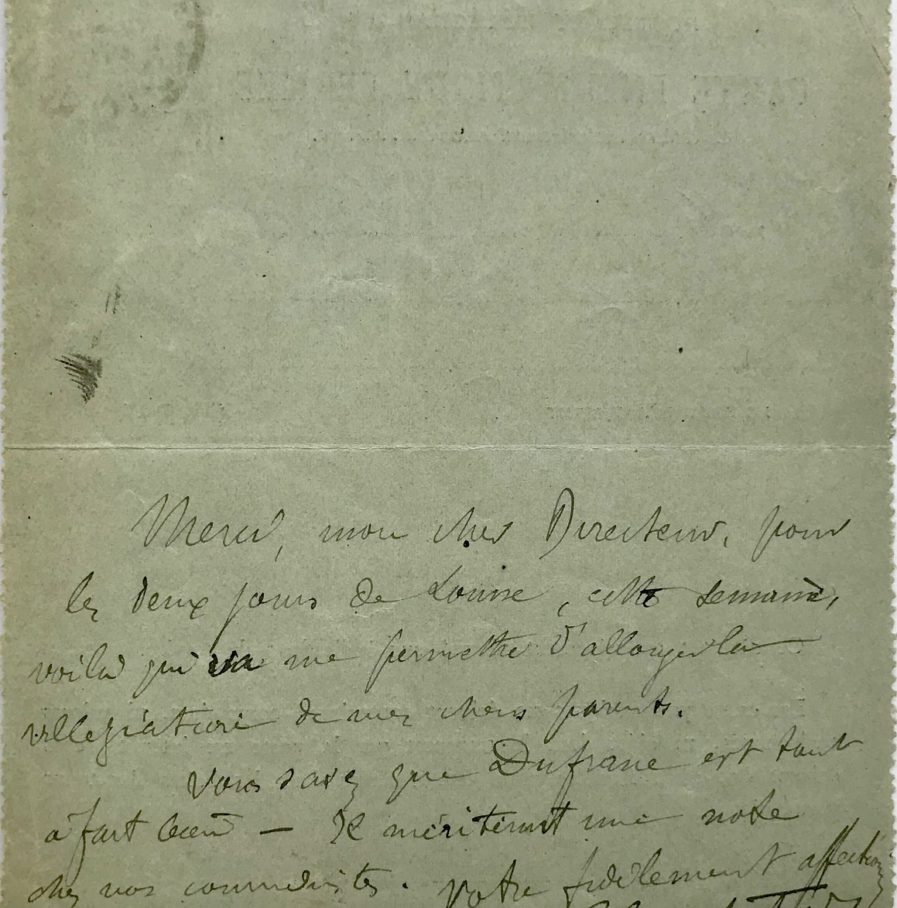 Merci, mon cher Directeur, pour
les deux jours de Louise, cette semaine,
voilà qui va me permettre d'allonger la
villégiature de mes chers parents.
Vous savez que Dufrane est tout
à fait bien — Il mériterait une note
chez nos courriéristes. Votre fidèlement affectionné